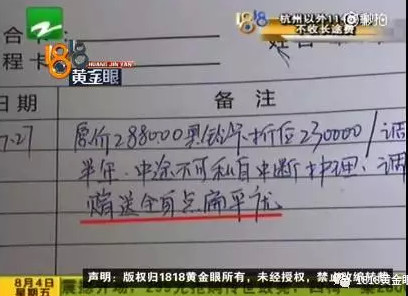 杭州以外11
不收长途费
秒拍
合卡
程卡
1818
黄金眼
HUANG JIN YAN
日期
备注
7.27
原价288000 折后230000/调
半年.中途不可私自中断护理.调
赠送全身点扁平疣
8月4日
星期五
声明:版权归1818黄金眼所有,未经授权,禁止改编转载
1818黄金眼